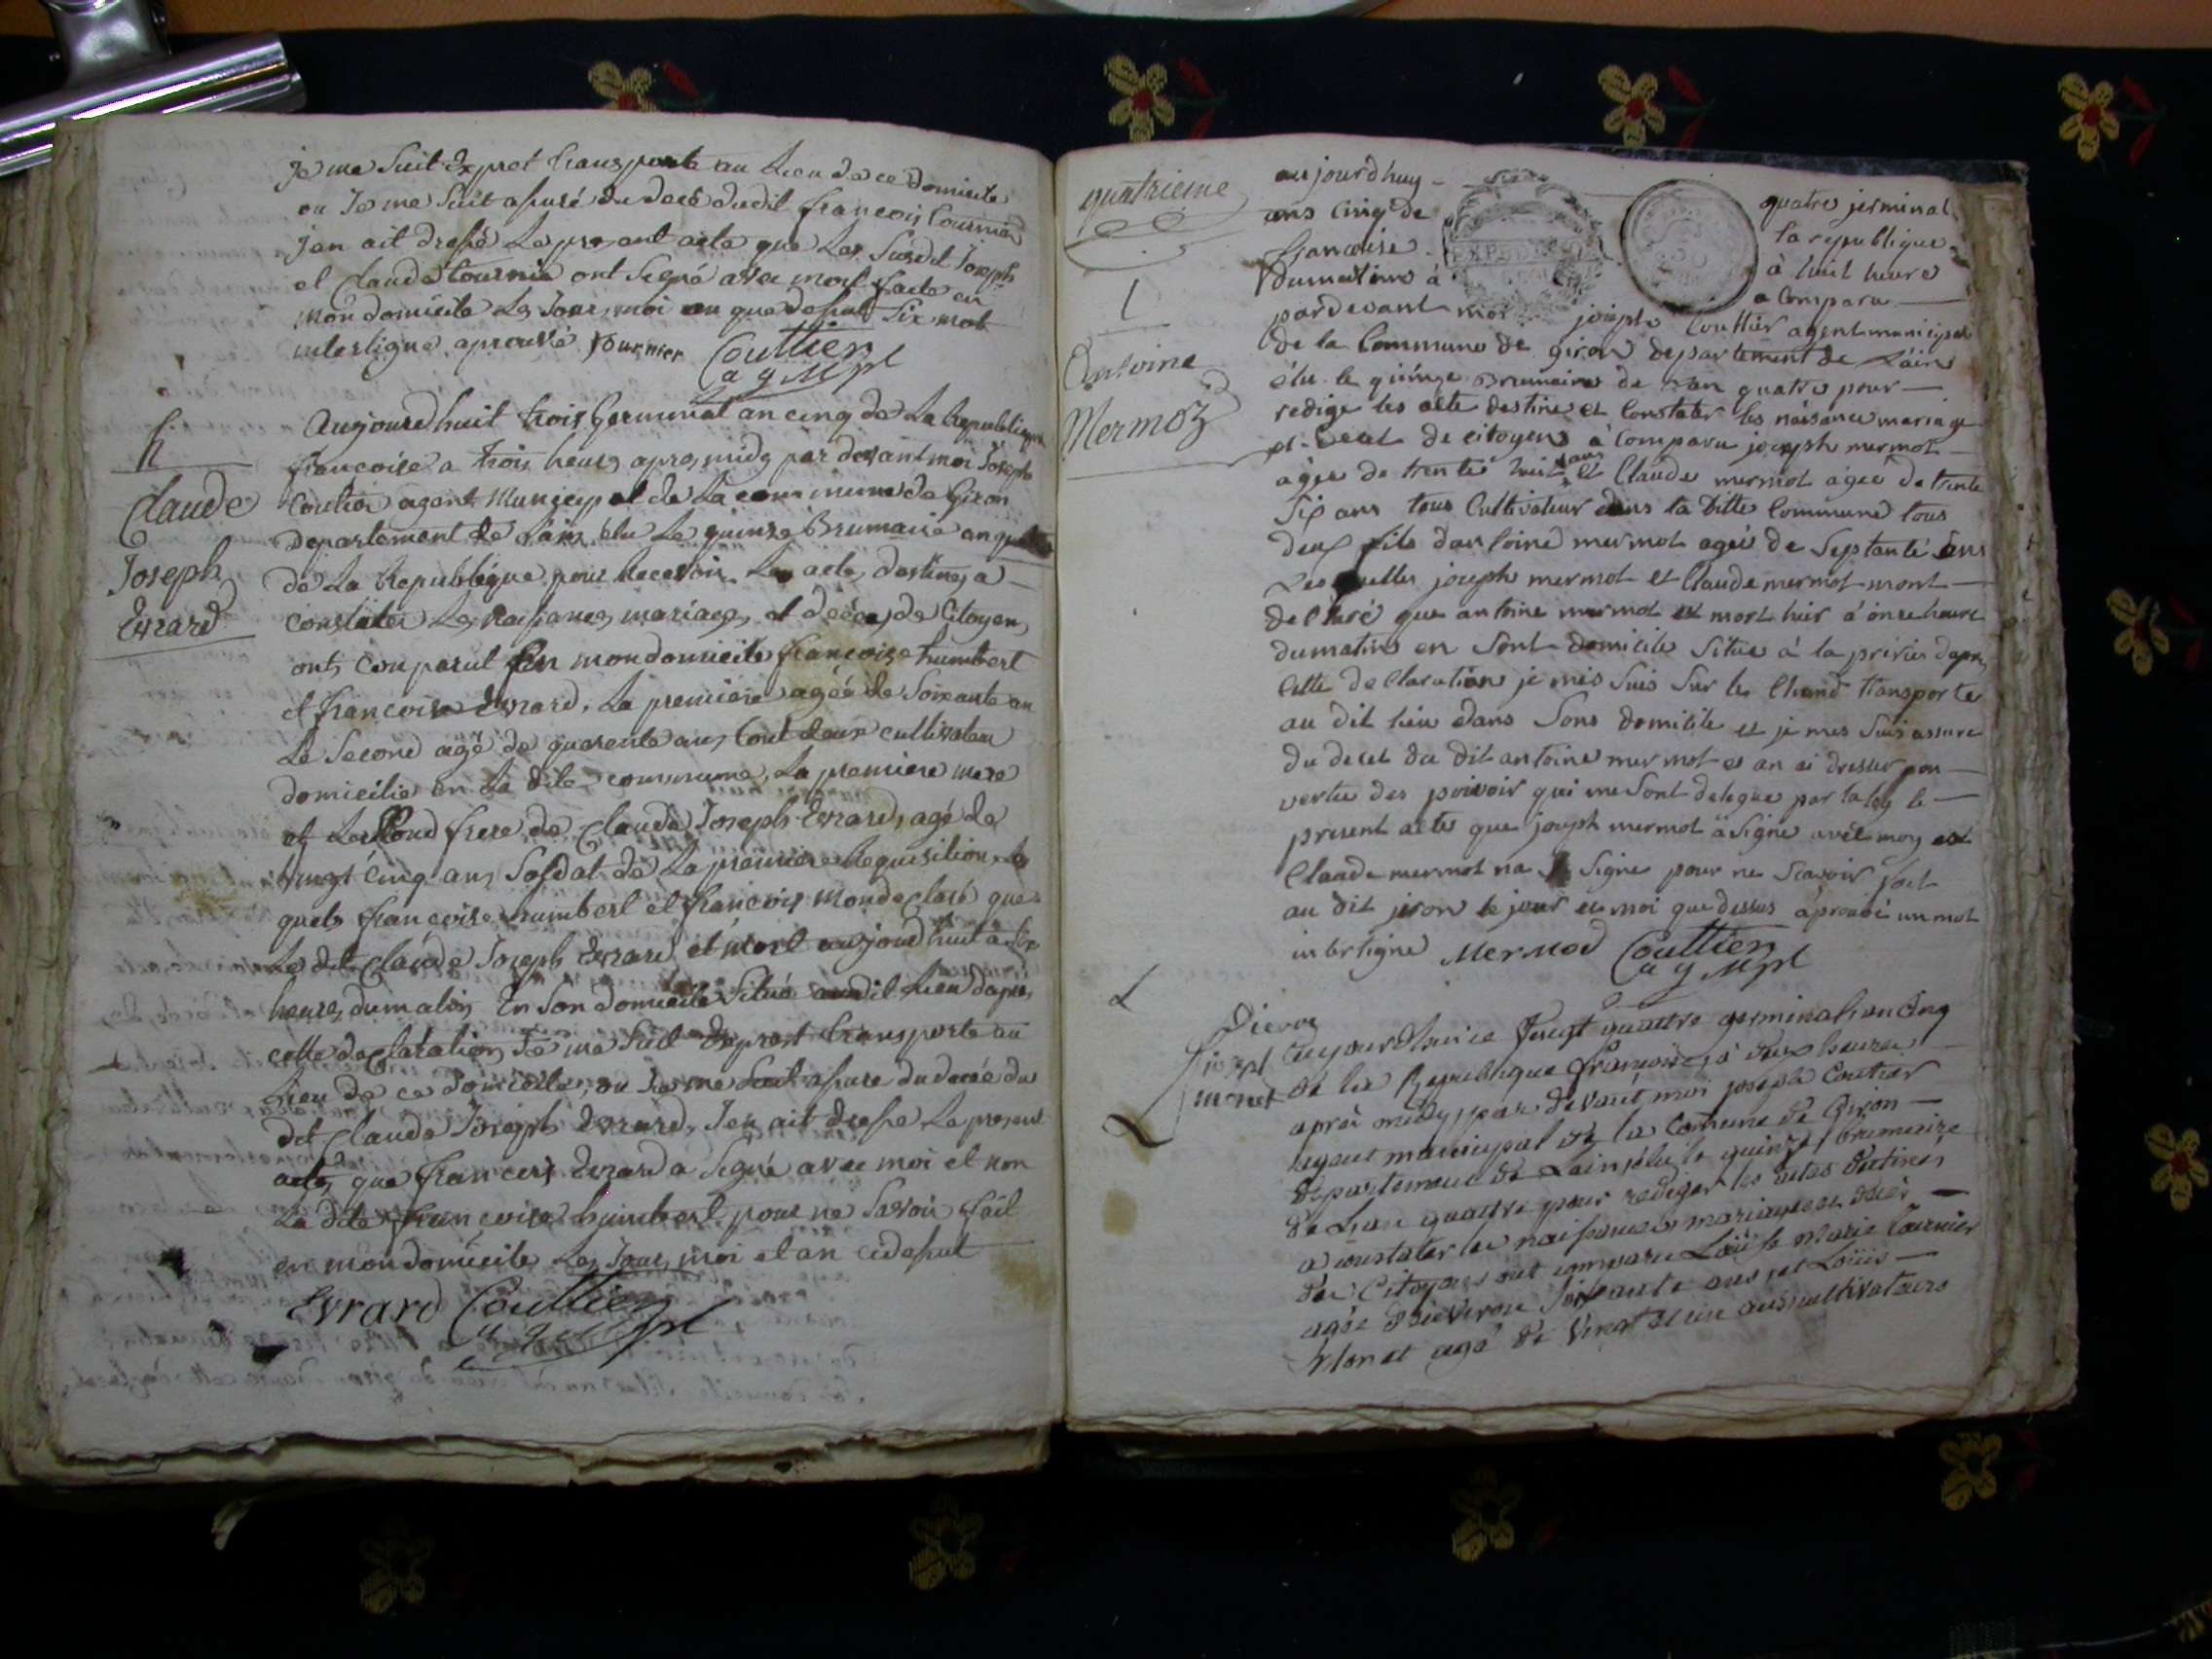 je me suit Expret transporte au Lieu de ce domicile
ou Je me suit assuré du decé dudit francois tournier
Jen ait dressé Le present acte que Les susdit Joseph
et Claude tournier ont signé avec moi fait en
mon domicile Les Jour, moi an que dessut Six mot
interligne aprouvé Fournier Couttier
agt mpl
h
Claude
Joseph
Evrard
Aujourdhuit trois Germinal an cinq de La Republique
francoise a trois heures apres midy par devant moi Joseph
Coutier agent Municipal de La commune de Giron
Departement de Lain élu Le quinze Brumaire an quatre
de La Republique pour Recevoir Les acte, destinés a
constater Les Naissance, mariage, et décés, de Citoyen,
onts comparut En mon domicile francoise humbert
et francois Evrard, La premiere agée de soixante an
Le Second agé de quarente an, tout deux cultivateur
domicilie en La dite commune, La premiere mere
et Le second frere de Claude Joseph Evrard, agé de
vingt cinq an, Soldat de La premiere Requisition, Les
quels francoise humbert et francois mon declaré que
Le dit Claude Joseph Evrard et mort aujourdhuit à six
heures du matin En Son domicile Situé audit Lieu dapres
cette declaration Je me suit Expret transporte au
Lieu de ce domicile, ou Je me suit assure du decée du
dit Claude Joseph Evrard, Jen ait dresse Le present
acte, que francois Evrard a Signé avec moi et non
La dite francoise humbert pour ne Savoir fait
en mon domicile Les Jour, moi et an cidessut
Evrard Couttier
agt mpl
quatrieme
l
Antoine
Mermoz
aujourdhuy quatre jerminal
ans cinq de la republique
francoise à huit heure
du matine à a Comparu
pardevant moi joseph Couttier agent municipal
de la Commune de giron departement de Lain
élu le quinze Brumaire de Lan quatre pour
redige les acte destine et Constater les naisance mariage
et decet de citoyens à Comparu joseph mermot
agée de trente huit ans et Claude mermot agée de trente
Six ans tous Cultivateur dans la ditte Commune tous
deux fils dantoine mermot agée de Septante ans
Lesquelles joseph mermot et Claude mermot mont
declaré que antoine mermot est mort hier à onze heure
du matine en Sont domicile Situe à la dapres
Cette declaration je mes suis sur le Chand transporte
au dit lieu dans Sons domicile et je mes suis assure
du decet du dit antoine mermot et an ai dresser pon
vertu des poivoir qui me Sont delegue par la loy le
present actes que joseph mermot à Signe avec moy et
Claude mermot na Signe pour ne Scavoir fait
au dit jiron le jour et moi que dessus aprouvé un mot
interligne Mermod Couttier
agt mpl
L
Pierre
monet
Aujourdhuie vingt quattre germinal an Cinq
de la Republique francoise, à deux heures
aprés midy, par devant moi joseph Coutier
agent municipal de la Comune de Giron
departement de Lain élu le quinze brumaire
de Lan quattre pour rediger les actes destinés
a constater les naissances mariages et décès
des Citoyens ont comparu Loüise Marie tournier
agée denviron Soixante ans et Loüis
Monet agé de vingt et un ans cultivateurs